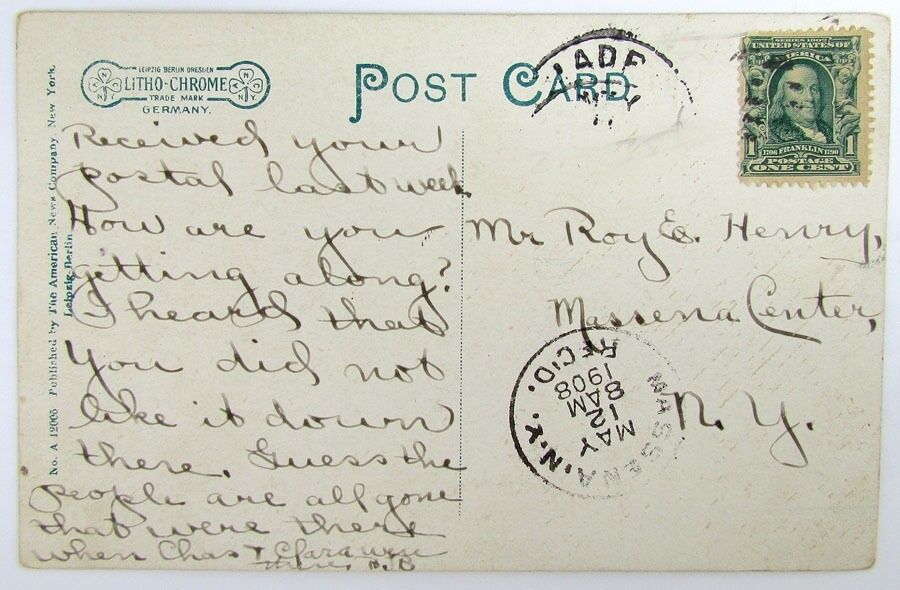 LEIPZIG BERLIN DRESDEN
LITHO-CHROME
TRADE MARK
GERMANY.
N Y
N.Y.
POST CARD
LADE
SERIES 1902
UNITED STATES OF
1706 FRANKLIN 1790
1 1
POSTAGE
ONE CENT
No. A 12005 Published by The American News Company, New York.
Leipzig-Berlin
Received your
postal last week
How are you
getting along?
I heard that
you did not
like it down
there. Guess the
people are all gone
that were there
when Chas & Clara were
there.
Mr Roy E. Henry,
Massena Center,
N. Y.
MASSENA, N.Y.
MAY
12
8 AM
1908
REC'D.